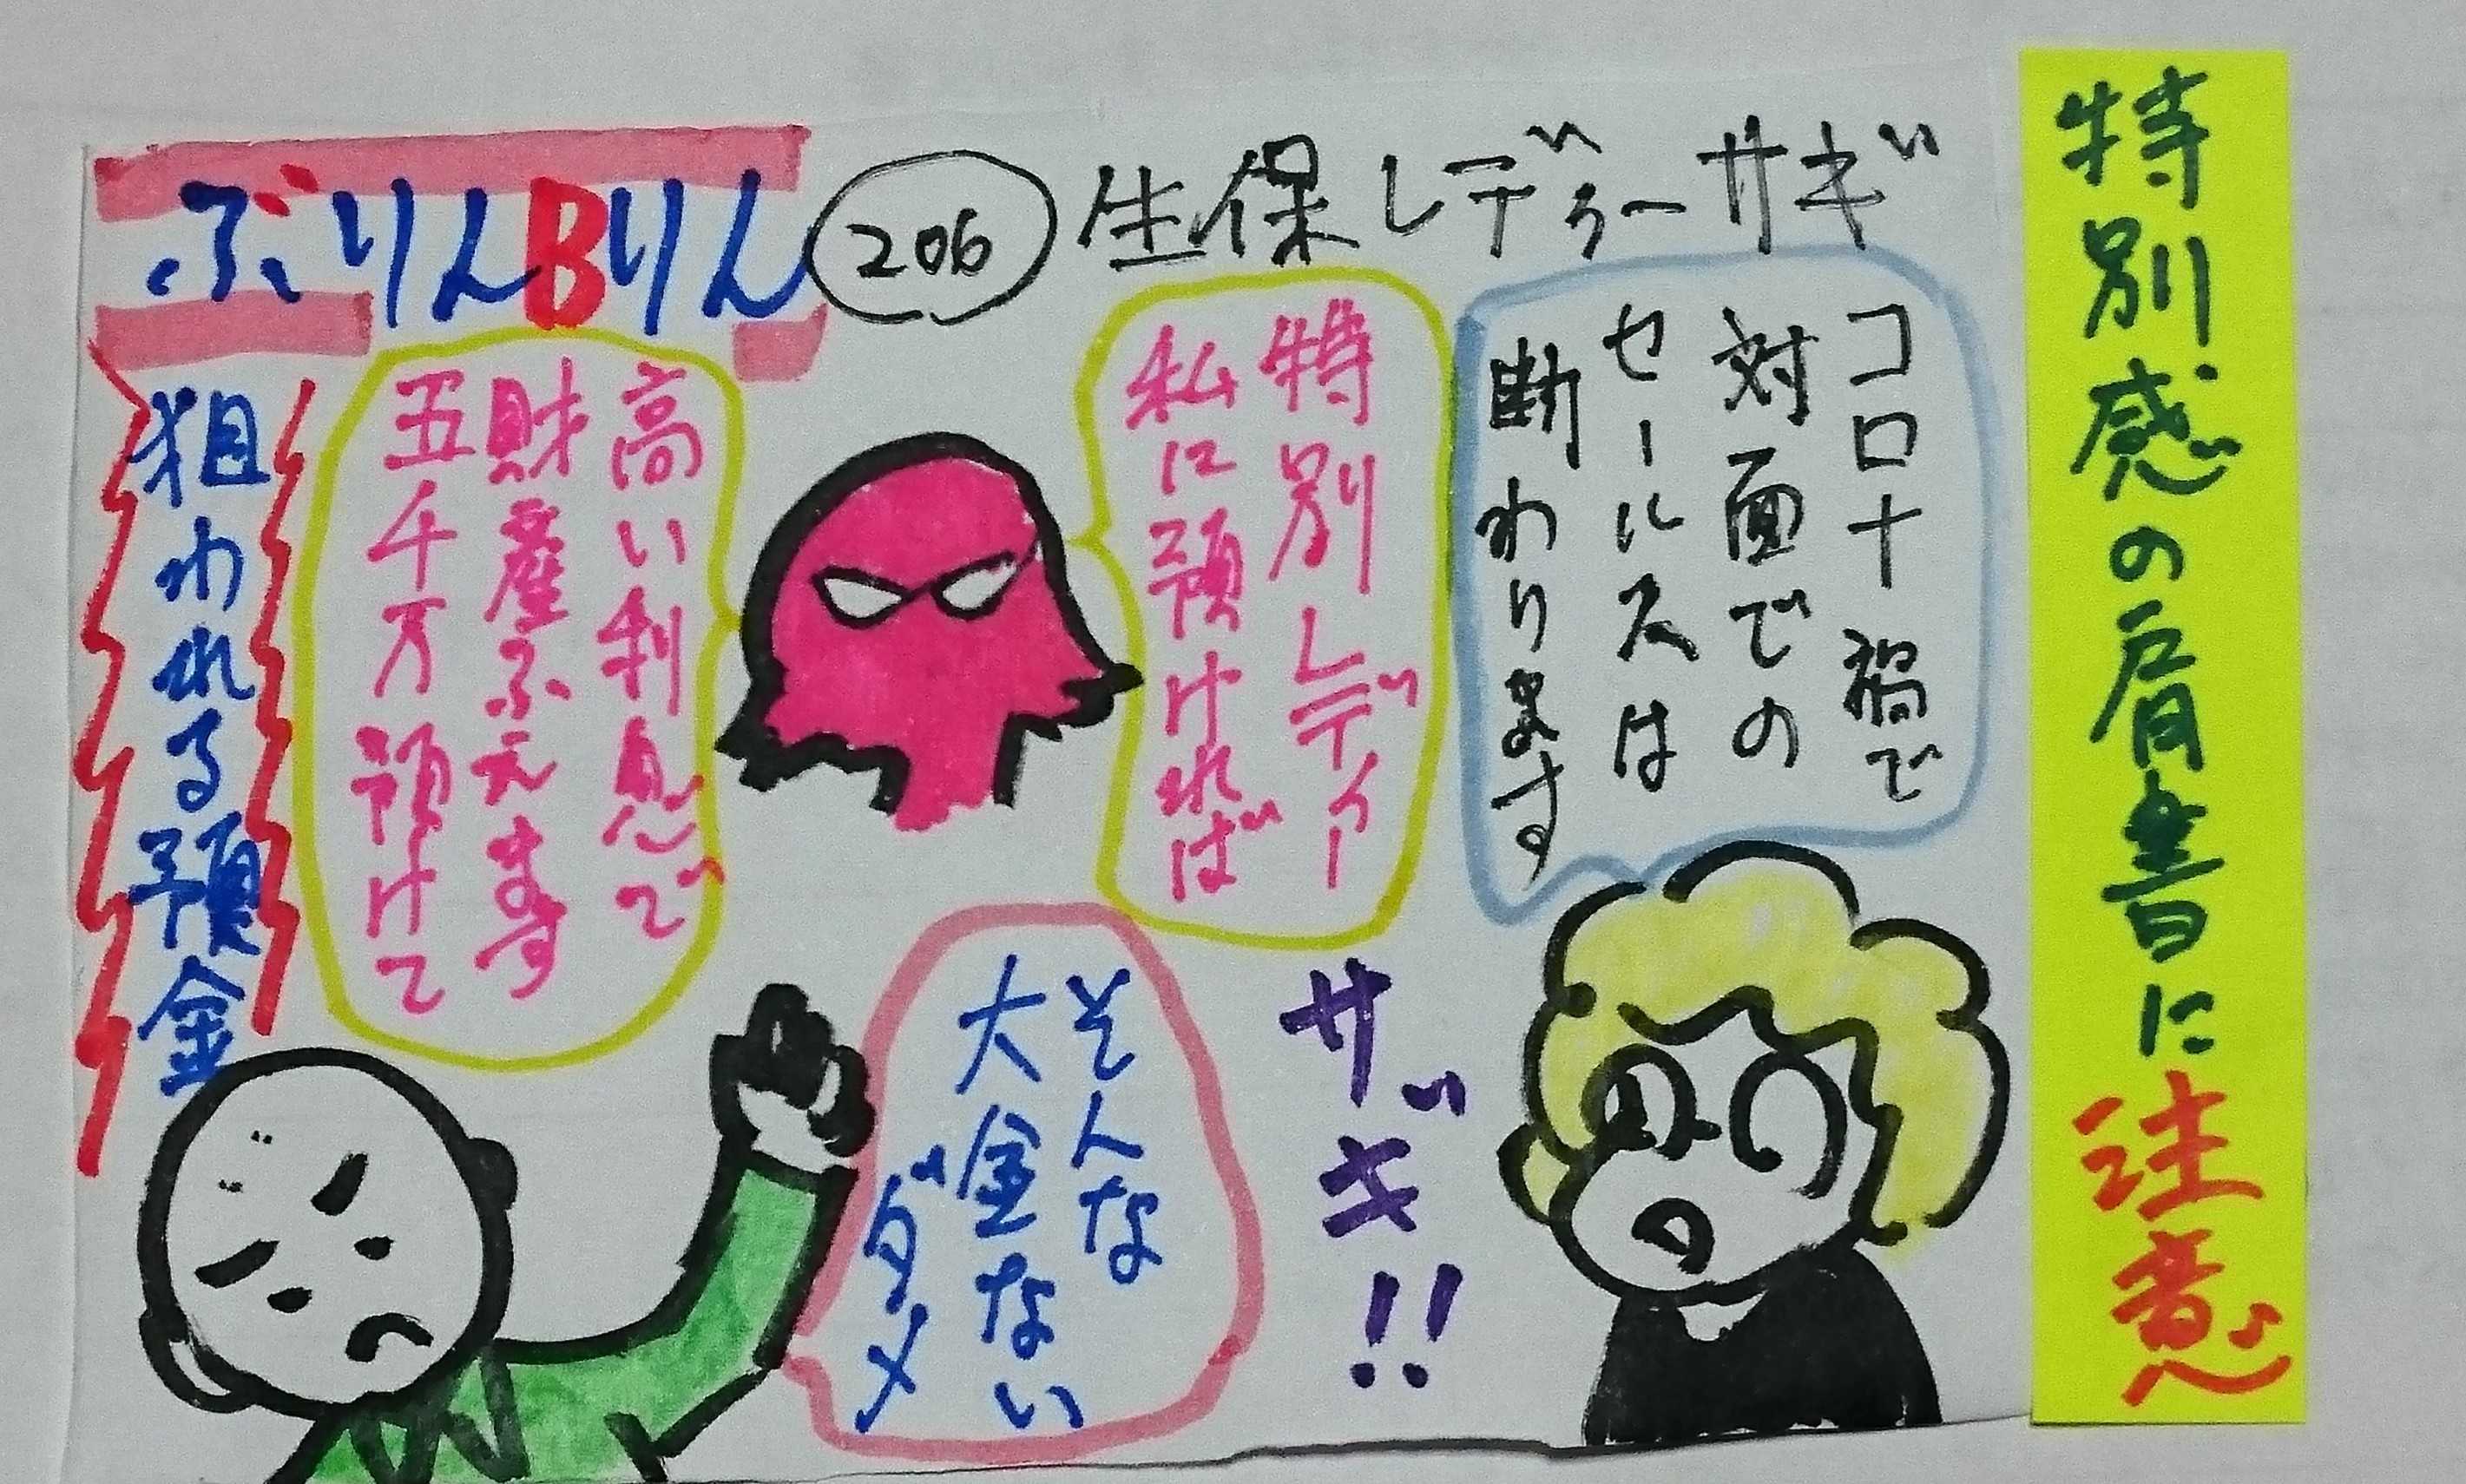 ぶりんBりん
206
生保レディーサギ
特別感の肩書に注意
コロナ禍で
対面での
セールスは
断わります
特別レディー
私に預ければ
高い利息で
財産ふえます
五千万預けて
狙われる預金
サギ!!
そんな
大金ない
ダメ